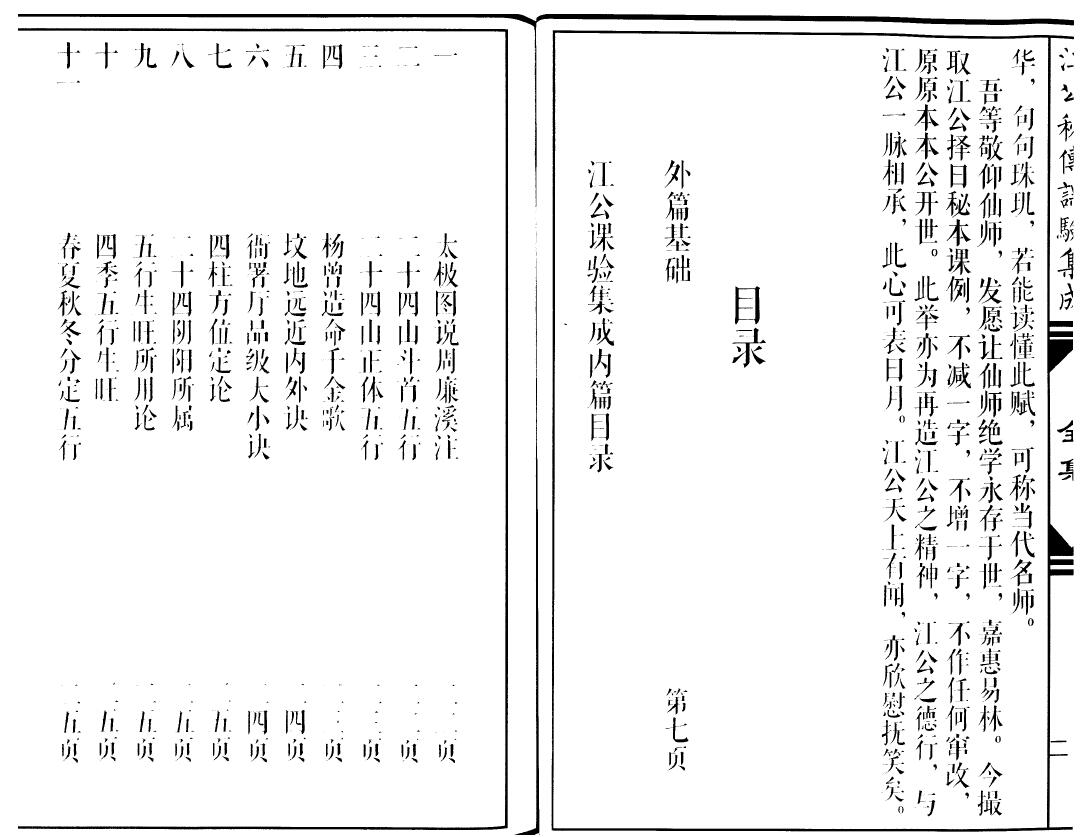 江公秘傳課驗集成
全集
二
华，句句珠玑，若能读懂此赋，可称当代名师。
吾等敬仰仙师，发愿让仙师绝学永存于世，嘉惠易林。今撮
取江公择日秘本课例，不减一字，不增一字，不作任何窜改，
原原本本公开世。此举亦为再造江公之精神，江公之德行，与
江公一脉相承，此心可表日月。江公天上有闻，亦欣慰抚笑矣。
目录
外篇基础 第七页
江公课验集成内篇目录
一 太极图说周廉溪注 页
二 二十四山斗首五行 页
三 二十四山正体五行 页
四 杨曾造命千金歌 页
五 坟地远近内外诀 四页
六 衙署厅品级大小诀 四页
七 四柱方位定论 五页
八 二十四阴阳所属 五页
九 五行生旺所用论 五页
十 四季五行生旺 五页
十一 春夏秋冬分定五行 五页